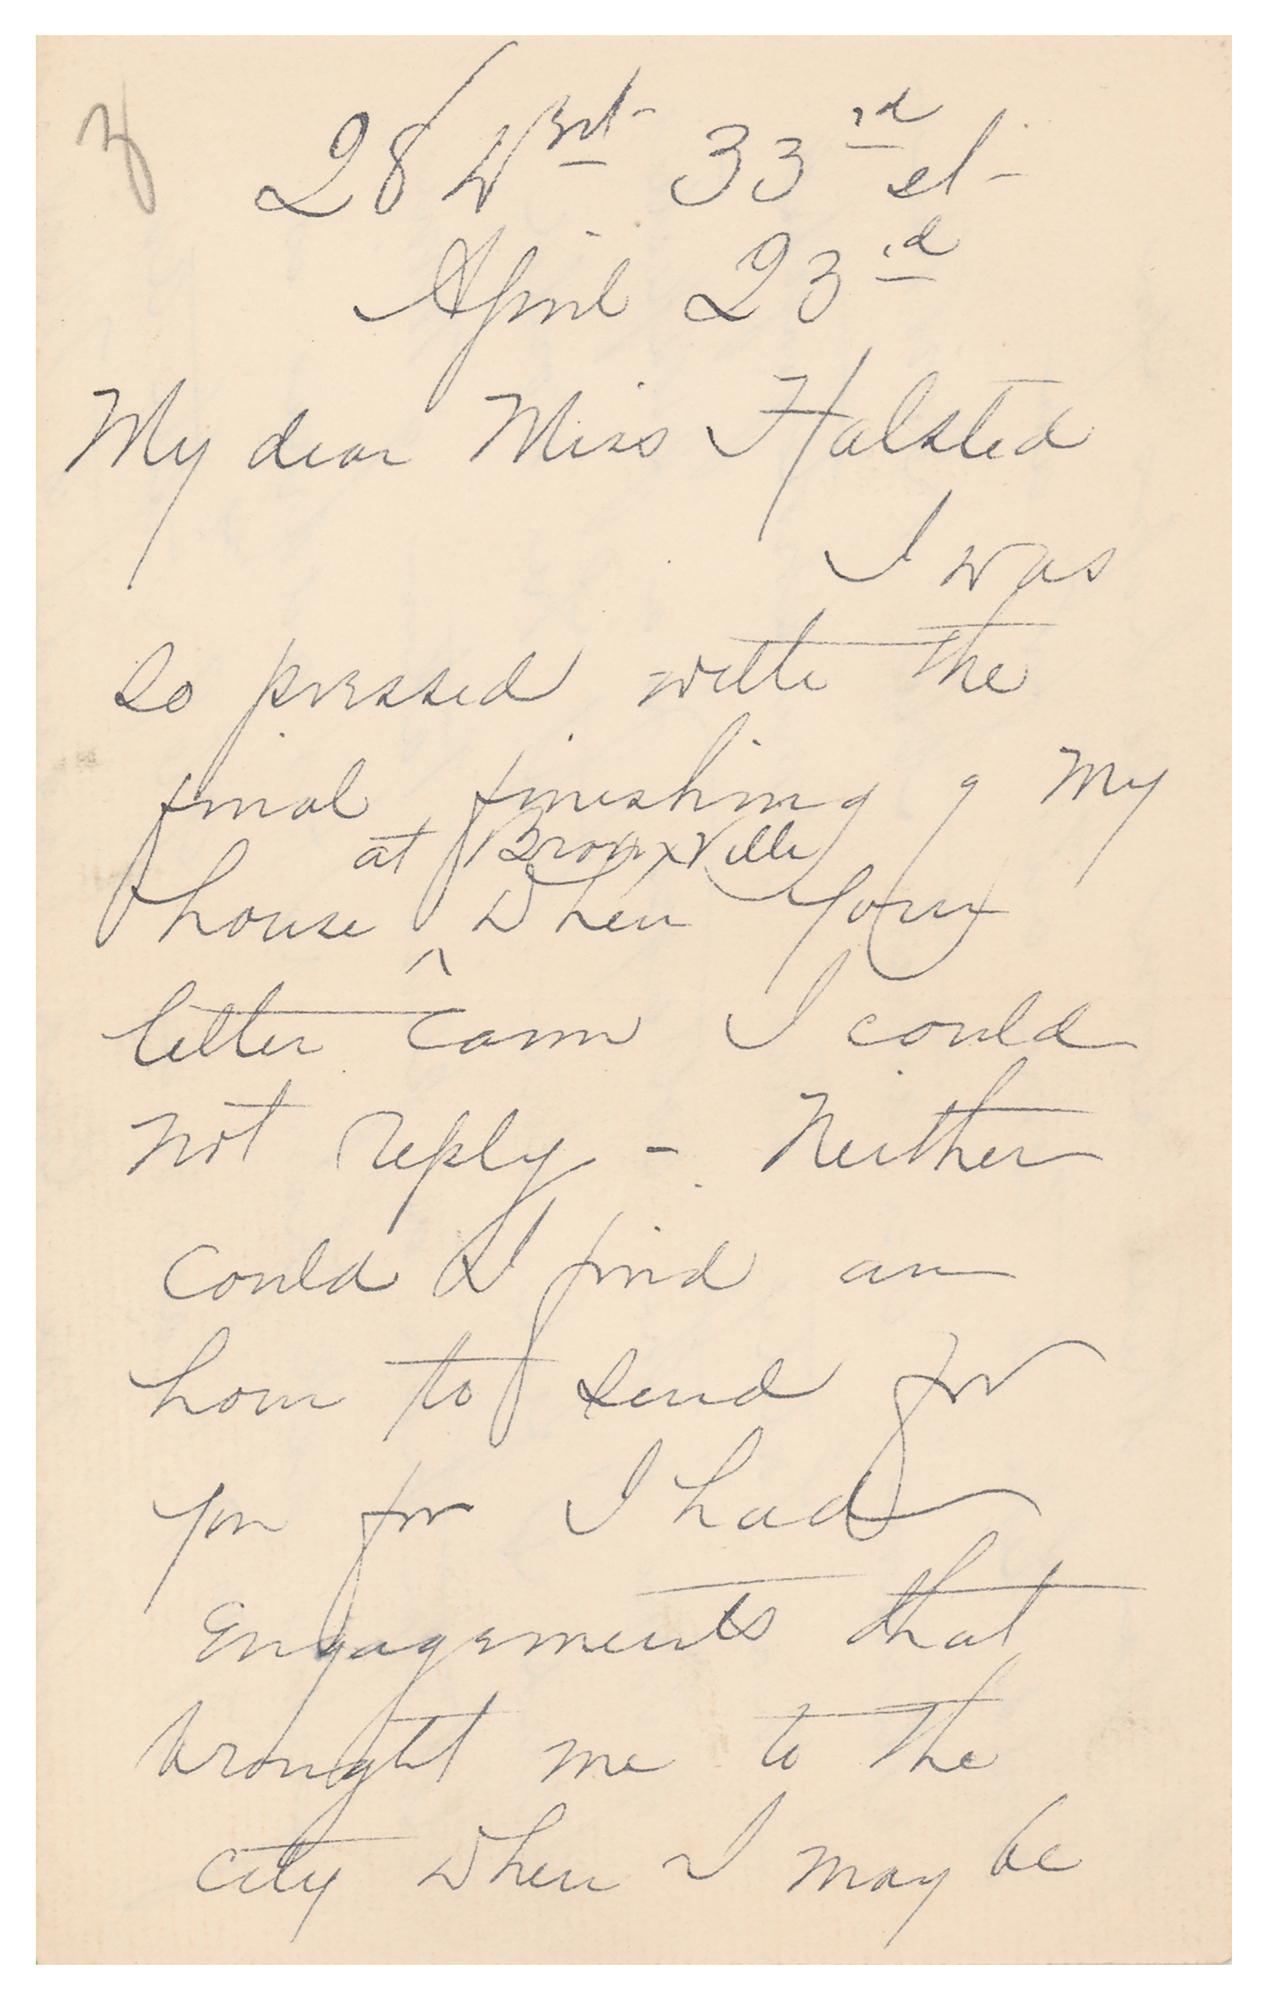 28 West 33rd st-
April 23rd
My dear Miss Halsted
I was
so pressed with the
final finishing of my
at Bronxville
house ^ when your
letter came I could
not reply - Neither
could I find an
hour to send for
you for I had
Engagements that
brought me to the
city when I may be